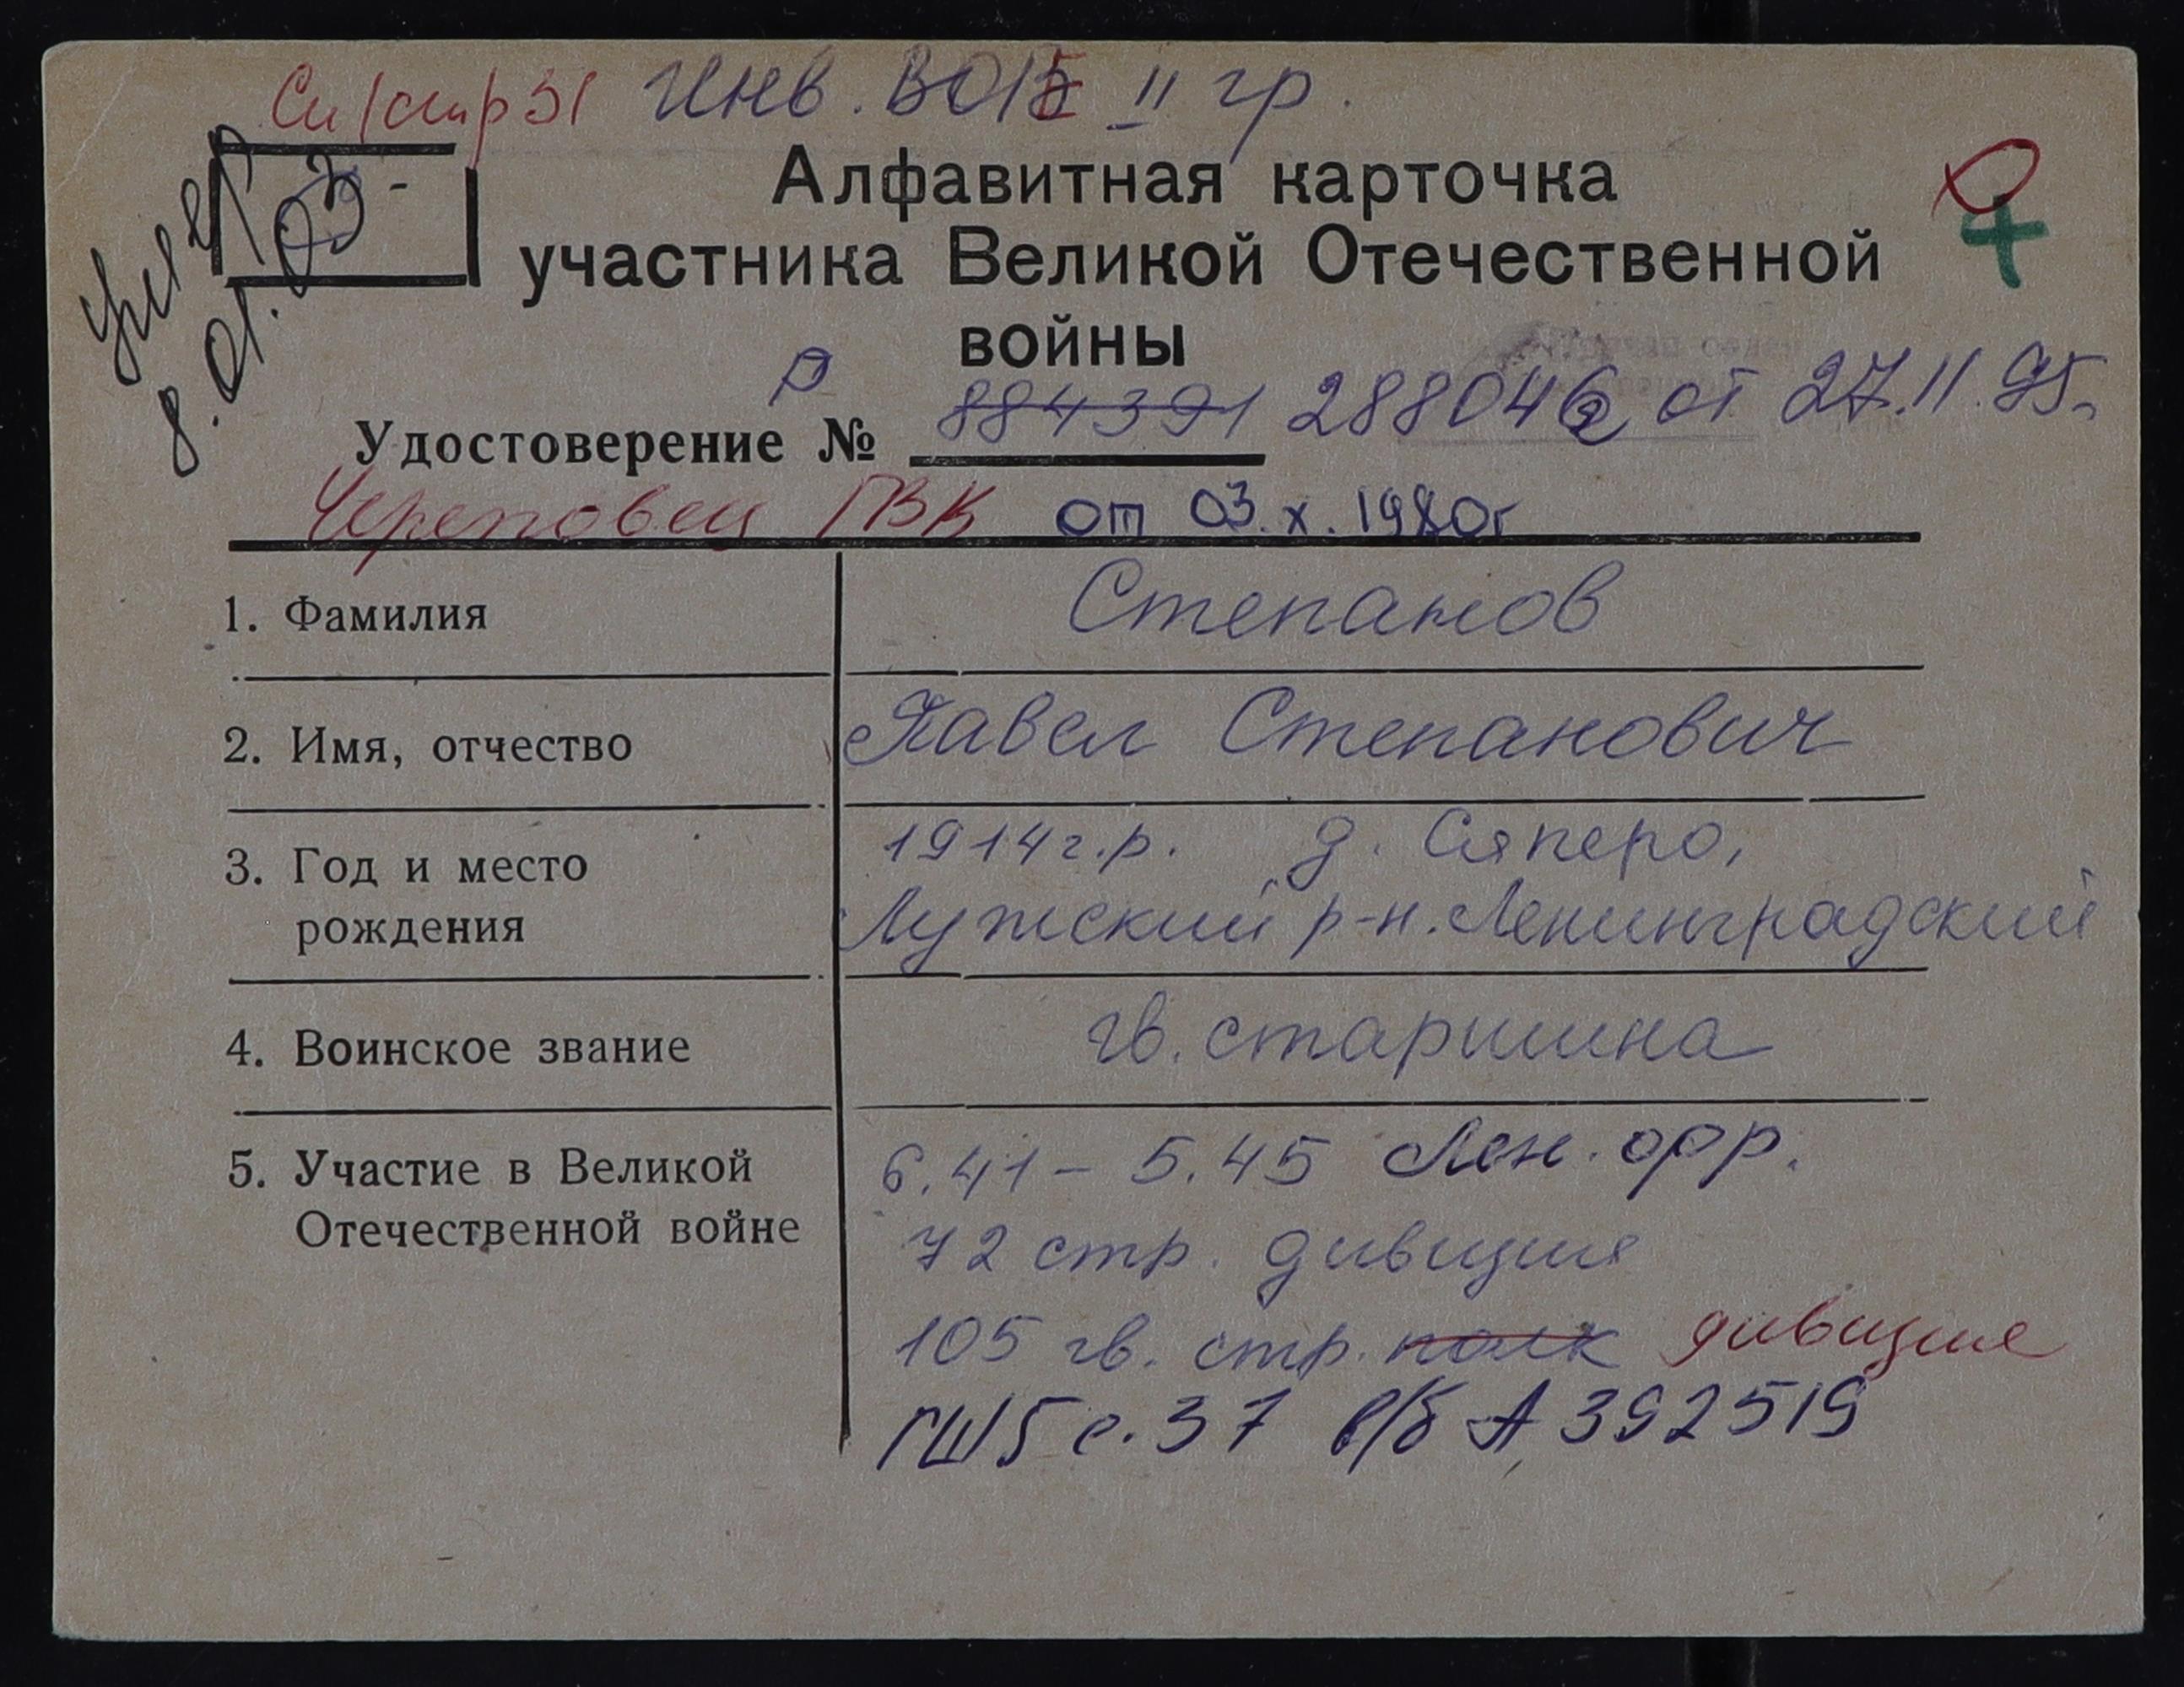 Инв. ВОВ II гр.
умер
8.01.03
Алфавитная карточка
участника Великой Отечественной
войны
Р
Удостоверение № 884391 288046 от 27.11.95.
Череповец ГВК от 03.X.1980г
1. Фамилия Степанов
2. Имя, отчество Павел Степанович
3. Год и место 1914г.р. д. Сяперо,
рождения Лужский р-н. Ленинградский
4. Воинское звание гв. старшина
5. Участие в Великой 6.41 - 5.45 Лен. фр.
Отечественной войне 72 стр. дивизия
105 гв. стр. полк дивизия
ГШ 5 с. 37 в/б А 392519